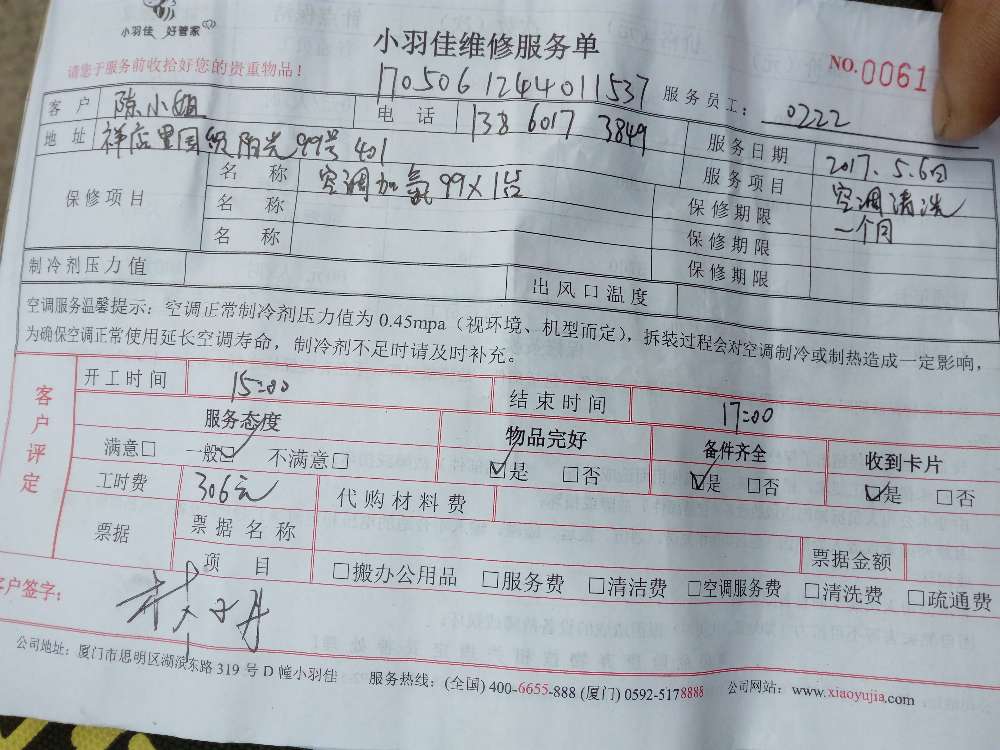 小羽佳 好管家
小羽佳维修服务单
NO.0061
请您于服务前收拾好您的贵重物品！
1705061244011537
服务员工： 0222
客户 陈小姐 电话 138 6017 3849 服务日期 2017.5.6日
地址 祥店里国贸阳光99号401 服务项目 空调清洗
保修项目 名称 空调加氟99X1台 保修期限 一个月
名称 保修期限
名称 保修期限
制冷剂压力值 出风口温度
空调服务温馨提示：空调正常制冷剂压力值为0.45mpa（视环境、机型而定），拆装过程会对空调制冷或制热造成一定影响，
为确保空调正常使用延长空调寿命，制冷剂不足时请及时补充。
客户评定
开工时间 15:00 结束时间 17:00
服务态度 物品完好 备件齐全 收到卡片
满意□ 一般☑ 不满意□ ☑是 □否 ☑是 □否 ☑是 □否
工时费 306元 代购材料费
票据 票据名称 票据金额
项目 □搬办公用品 □服务费 □清洁费 □空调服务费 □清洗费 □疏通费
客户签字：
公司地址：厦门市思明区湖滨东路319号D幢小羽佳 服务热线：(全国) 400-6655-888 (厦门) 0592-5178888 公司网站：www.xiaoyujia.com